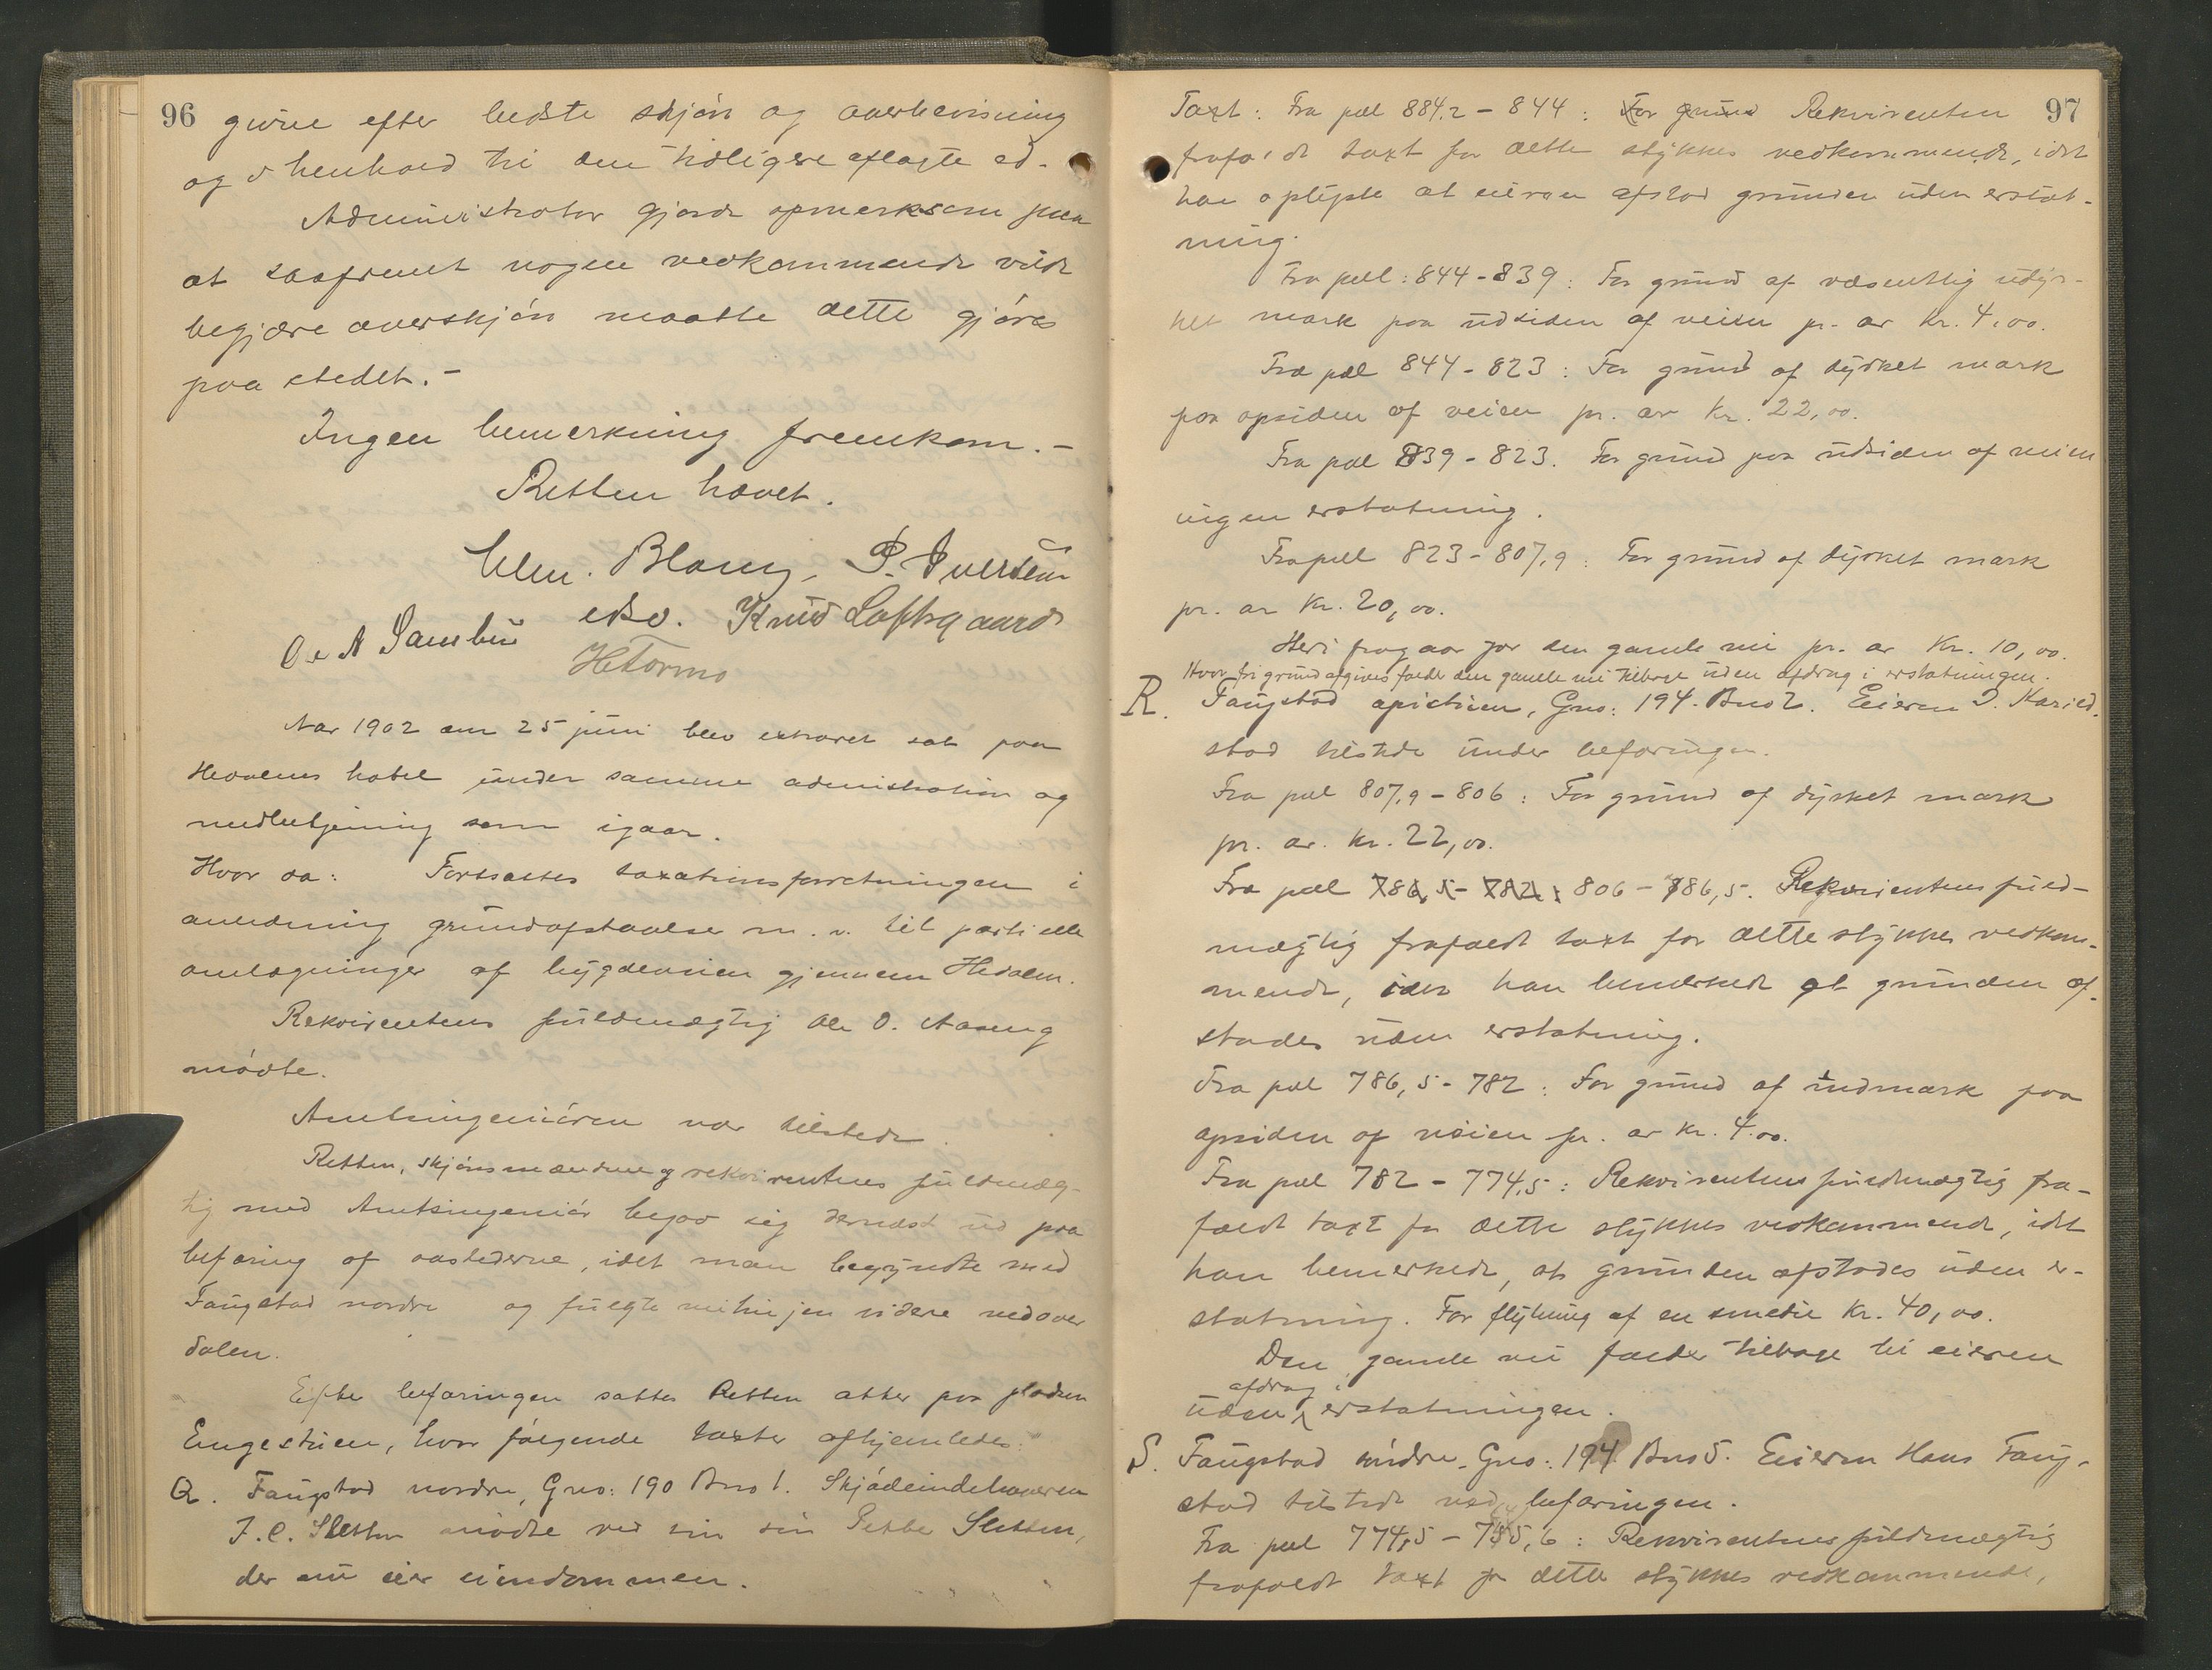 96
givne efter bedste skjön og overbevisning
og i henhold til den tidligere aflagte ed.
Administrator gjorde opmerksom paa
at saafremt nogen vedkommende vilde
begjære overskjön maatte dette gjöres
paa stedet. -
Ingen bemerkning fremkom. -
Retten hævet.
Chr. Blom, P. Iversen
eBo. Knud Loftsgaard
O. A
HTormo
Aar 1902 den 25 juni blev extraret sat paa
Hedalens hotel under samme administration og
medbetjening som igaar.
Hvor da: Fortsattes taxationsforretningen i
anledning grundafstaaelse m. v. til partielle
omlægninger af bygdeveien gjennem Hedalen.
Rekvirentens fuldmægtig Ole O. Aaseng
mödte.
Amtsingeniören var tilstede.
Retten, skjönsmændene og rekvirentens fuldmæg-
tig med Amtsingeniör begav sig dernæst ud paa
befaring af aastederne, idet man begyndte med
Faugstad nordre og fulgte veilinjen videre nedover
dalen.
Efter befaringen sattes Retten atter paa pladsen
Engestuen, hvor fölgende taxter afhjemledes:
Q. Faugstad nordre, Gno: 190 Bno 1. Skjödeindehaveren
J. C. Sletten mödte ved sin sön Sletten,
der nu eier eiendommen.
97
Taxt: Fra pæl 884,2 - 844: For grund Rekvirenten
frafaldt taxt for dette stykkes vedkommende, idet
han oplyste at eieren afstod grunden uden erstat-
ning.
Fra pæl: 844 - 839: For grund af væsentlig udyr-
ket mark paa udsiden af veien pr. ar kr. 4,00.
Fra pæl 844 - 823: For grund af dyrket mark
paa opsiden af veien pr. ar kr. 22,00.
Fra pæl 839 - 823. For grund paa udsiden af veien
ingen erstatning.
Fra pæl 823 - 807,9: For grund af dyrket mark
pr. ar kr. 20,00.
Heri fragaar for den gamle vei pr. ar Kr. 10,00.
Hvor fri grund afgives falder den gamle vei tilbage uden afdrag i erstatningen.
R. Faugstad opistuen, Gno: 194. Bno 2. Eieren O. Karild.
stad tilstede under befaringen.
Fra pæl 807,9 - 806: For grund af dyrket mark
pr. ar. kr. 22,00.
Fra pæl 786,5 - 782: 806 - 786,5. Rekvirentens fuld-
mægtig frafaldt taxt for dette stykkes vedkom-
mende, idet han bemerkede at grunden af-
stades uden erstatning.
Fra pæl 786,5 - 782: For grund af indmark paa
opsiden af veien pr. ar kr. 4.00.
Fra pæl 782 - 774,5: Rekvirentens fuldmægtig fra-
faldt taxt for dette stykkes vedkommende, idet
han bemerkede, at grunden afstodes uden er-
statning. For flytning af en smedie Kr. 40,00.
Den gamle vei falder tilbage til eieren
afdrag i
uden erstatningen.
S. Faugstad nordre, Gno: 194 Bno 5. Eieren Hans Faug-
stad tilstede ved befaringen.
Fra pæl 774,5 - 755,6: Rekvirentens fuldmægtig
frafaldt taxt for dette stykkes vedkommende,